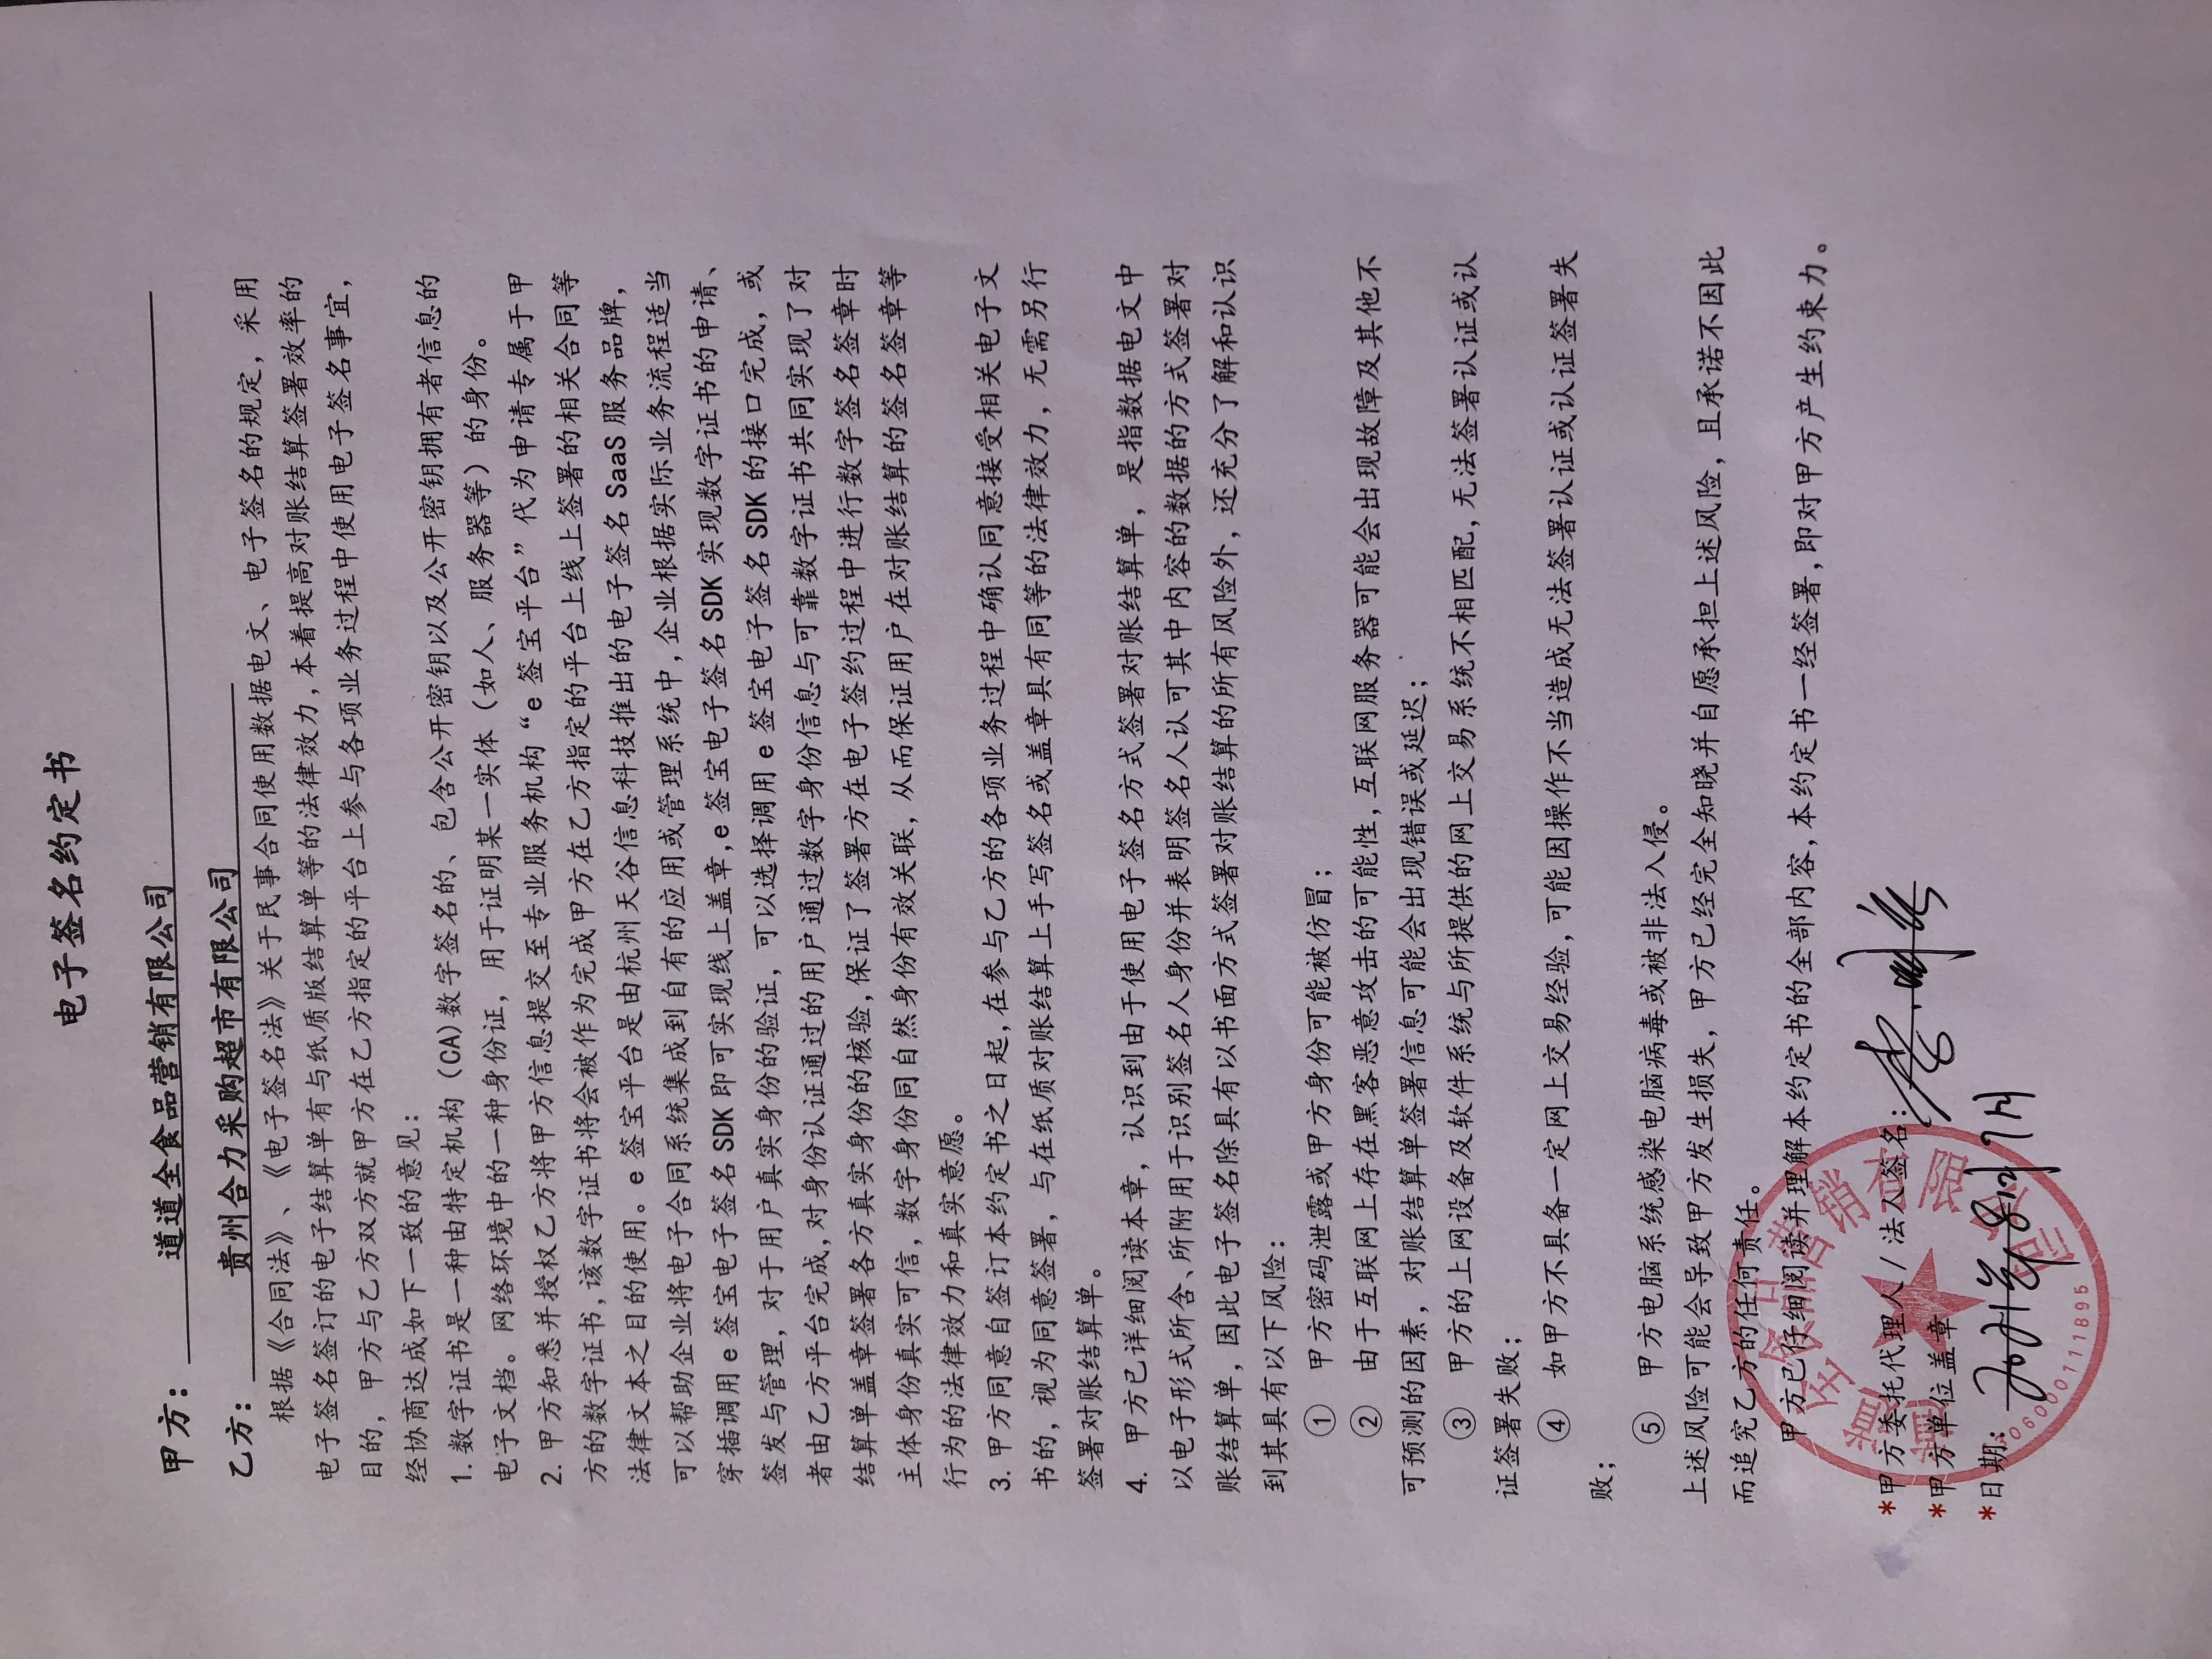 电子签名约定书
甲方： 道道全食品营销有限公司
乙方： 贵州合力采购超市有限公司
根据《合同法》、《电子签名法》关于民事合同使用数据电文、电子签名的规定，采用
电子签名签订的电子结算单有与纸质版结算单等的法律效力，本着提高对账结算签署效率的
目的，甲方与乙方双方就甲方在乙方指定的平台上参与各项业务过程中使用电子签名事宜，
经协商达成如下一致的意见：
1. 数字证书是一种由特定机构（CA）数字签名的、包含公开密钥以及公开密钥拥有者信息的
电子文档。网络环境中的一种身份证，用于证明某一实体（如人、服务器等）的身份。
2. 甲方知悉并授权乙方将甲方信息提交至专业服务机构“e 签宝平台”代为申请专属于甲
方的数字证书，该数字证书将会被作为完成甲方在乙方指定的平台上线上签署的相关合同等
法律文本之目的使用。e 签宝平台是由杭州天谷信息科技推出的电子签名 SaaS 服务品牌，
可以帮助企业将电子合同系统集成到自有的应用或管理系统中，企业根据实际业务流程适当
穿插调用 e 签宝电子签名 SDK 即可实现线上盖章，e 签宝电子签名 SDK 实现数字证书的申请、
签发与管理，对于用户真实身份的验证，可以选择调用 e 签宝电子签名 SDK 的接口完成，或
者由乙方平台完成，对身份认证通过的用户通过数字身份信息与可靠数字证书共同实现了对
结算单盖章签署各方真实身份的核验，保证了签署方在电子签约过程中进行数字签名签章时
主体身份真实可信，数字身份同自然身份有效关联，从而保证用户在对账结算的签名签章等
行为的法律效力和真实意愿。
3. 甲方同意自签订本约定书之日起，在参与乙方的各项业务过程中确认同意接受相关电子文
书的，视为同意签署，与在纸质对账结算上手写签名或盖章具有同等的法律效力，无需另行
签署对账结算单。
4. 甲方已详细阅读本章，认识到由于使用电子签名方式签署对账结算单，是指数据电文中
以电子形式所含、所附用于识别签名人身份并表明签名人认可其中内容的数据的方式签署对
账结算单，因此电子签名除具有以书面方式签署对账结算的所有风险外，还充分了解和认识
到其具有以下风险：
① 甲方密码泄露或甲方身份可能被仿冒；
② 由于互联网上存在黑客恶意攻击的可能性，互联网服务器可能会出现故障及其他不
可预测的因素，对账结算单签署信息可能会出现错误或延迟；
③ 甲方的上网设备及软件系统与所提供的网上交易系统不相匹配，无法签署认证或认
证签署失败；
④ 如甲方不具备一定网上交易经验，可能因操作不当造成无法签署认证或认证签署失
败；
⑤ 甲方电脑系统感染电脑病毒或被非法入侵。
上述风险可能会导致甲方发生损失，甲方已经完全知晓并自愿承担上述风险，且承诺不因此
而追究乙方的任何责任。
甲方已仔细阅读并理解本约定书的全部内容，本约定书一经签署，即对甲方产生约束力。
*甲方委托代理人/法人签名：
*甲方单位盖章
*日期：
道道全食品营销有限公司